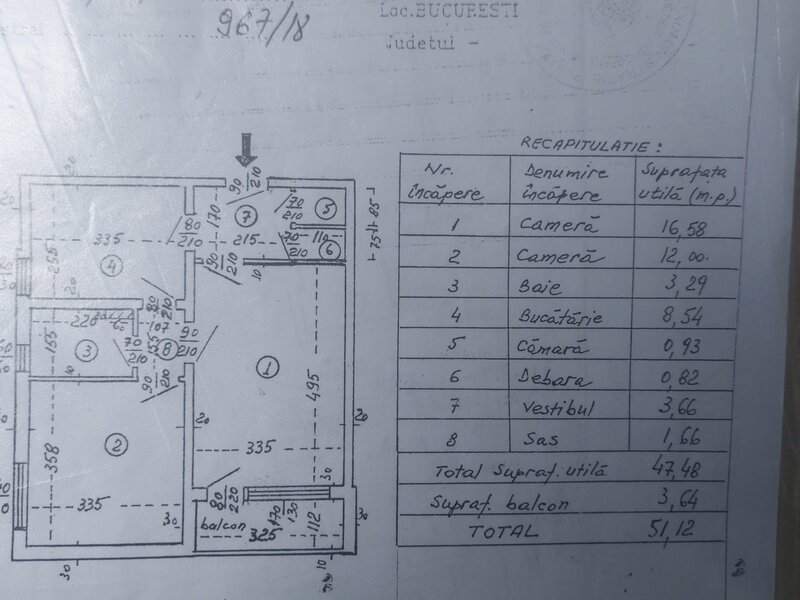 967/18
Loc.BUCURESTI
Judetul -
RECAPITULATIE :
Nr. încăpere Denumire încăpere Suprafata utilă (m.p.)
1 Cameră 16,58
2 Cameră 12,00.
3 Baie 3,29
4 Bucătărie 8,54
5 Cămară 0,93
6 Debara 0,82
7 Vestibul 3,66
8 Sas 1,66
Total Supraf. utilă 47,48
Supraf. balcon 3,64
TOTAL 51,12
20
90 210
170
7
70 210
5
85
335
80 210
215
70 210
110
6
75
255
4
90 210
10
20
80 210
220
107
90 210
155
3
70 210
155
8
10
90 210
1
495
2
20
20
358
335
335
30
30
80 220
balcon
170 130
112
30
325
30
10